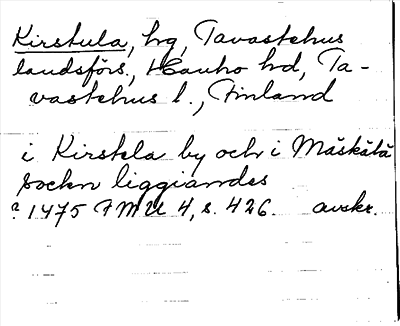 Kirstula, hg, Tavastehus
landsförs., Hauho hd, Ta-
vastehus l., Finland
i Kirstela by och i Mäskälä
sockn liggiandes
? 1475 FMU 4, s. 426. avskr.